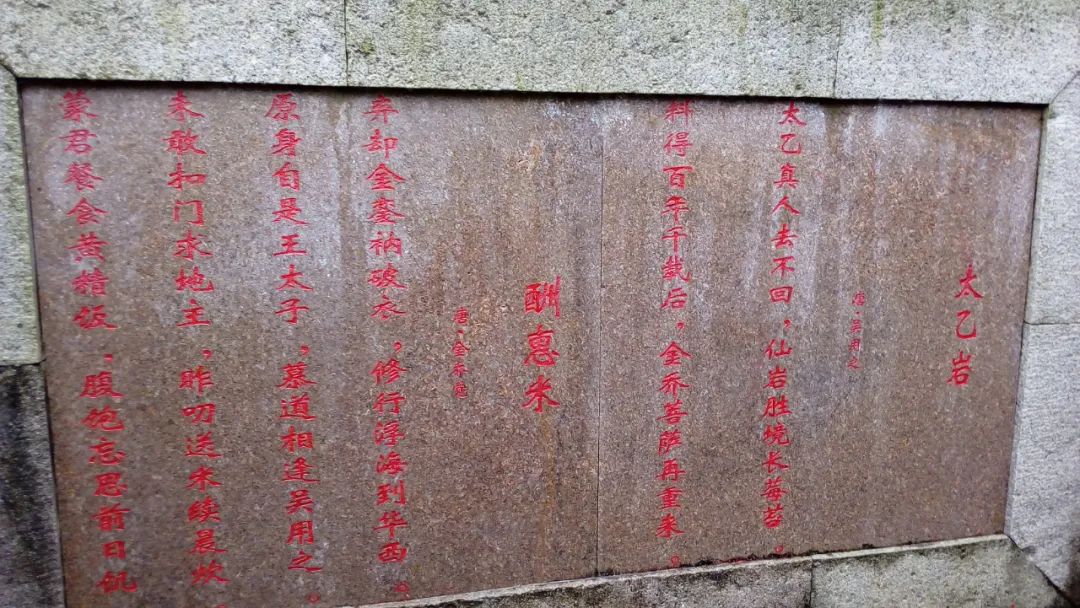 太乙岩
唐·吴用之
太乙真人去不回，仙岩胜境长莓苔。
料得百年千载后，金乔菩萨再重来。
酬惠米
唐·金乔觉
弃却金銮衲破衣，修行浮海到华西。
原身自是王太子，慕道相逢吴用之。
未敢扣门求地主，昨叨送米续晨炊。
蒙君餐食黄精饭，腹饱忘思前日饥